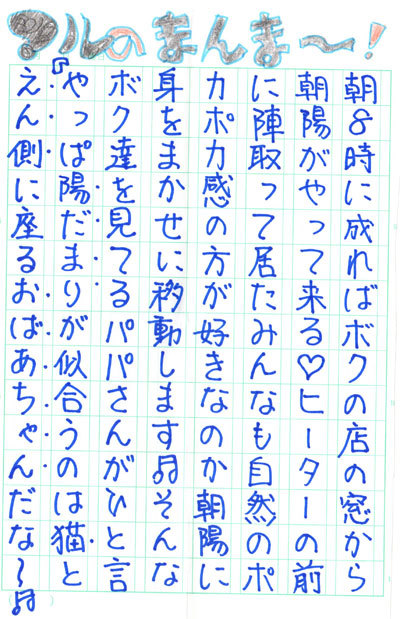 アルのまんま〜!
朝8時に成ればボクの店の窓から
朝陽がやって来る♡ヒーターの前
に陣取って居たみんなも自然のポ
カポカ感の方が好きなのか朝陽に
身をまかせに移動します♫そんな
ボク達を見てるパパさんがひと言
『やっぱ陽だまりが似合うのは猫と
えん側に座るおばあちゃんだな〜♫